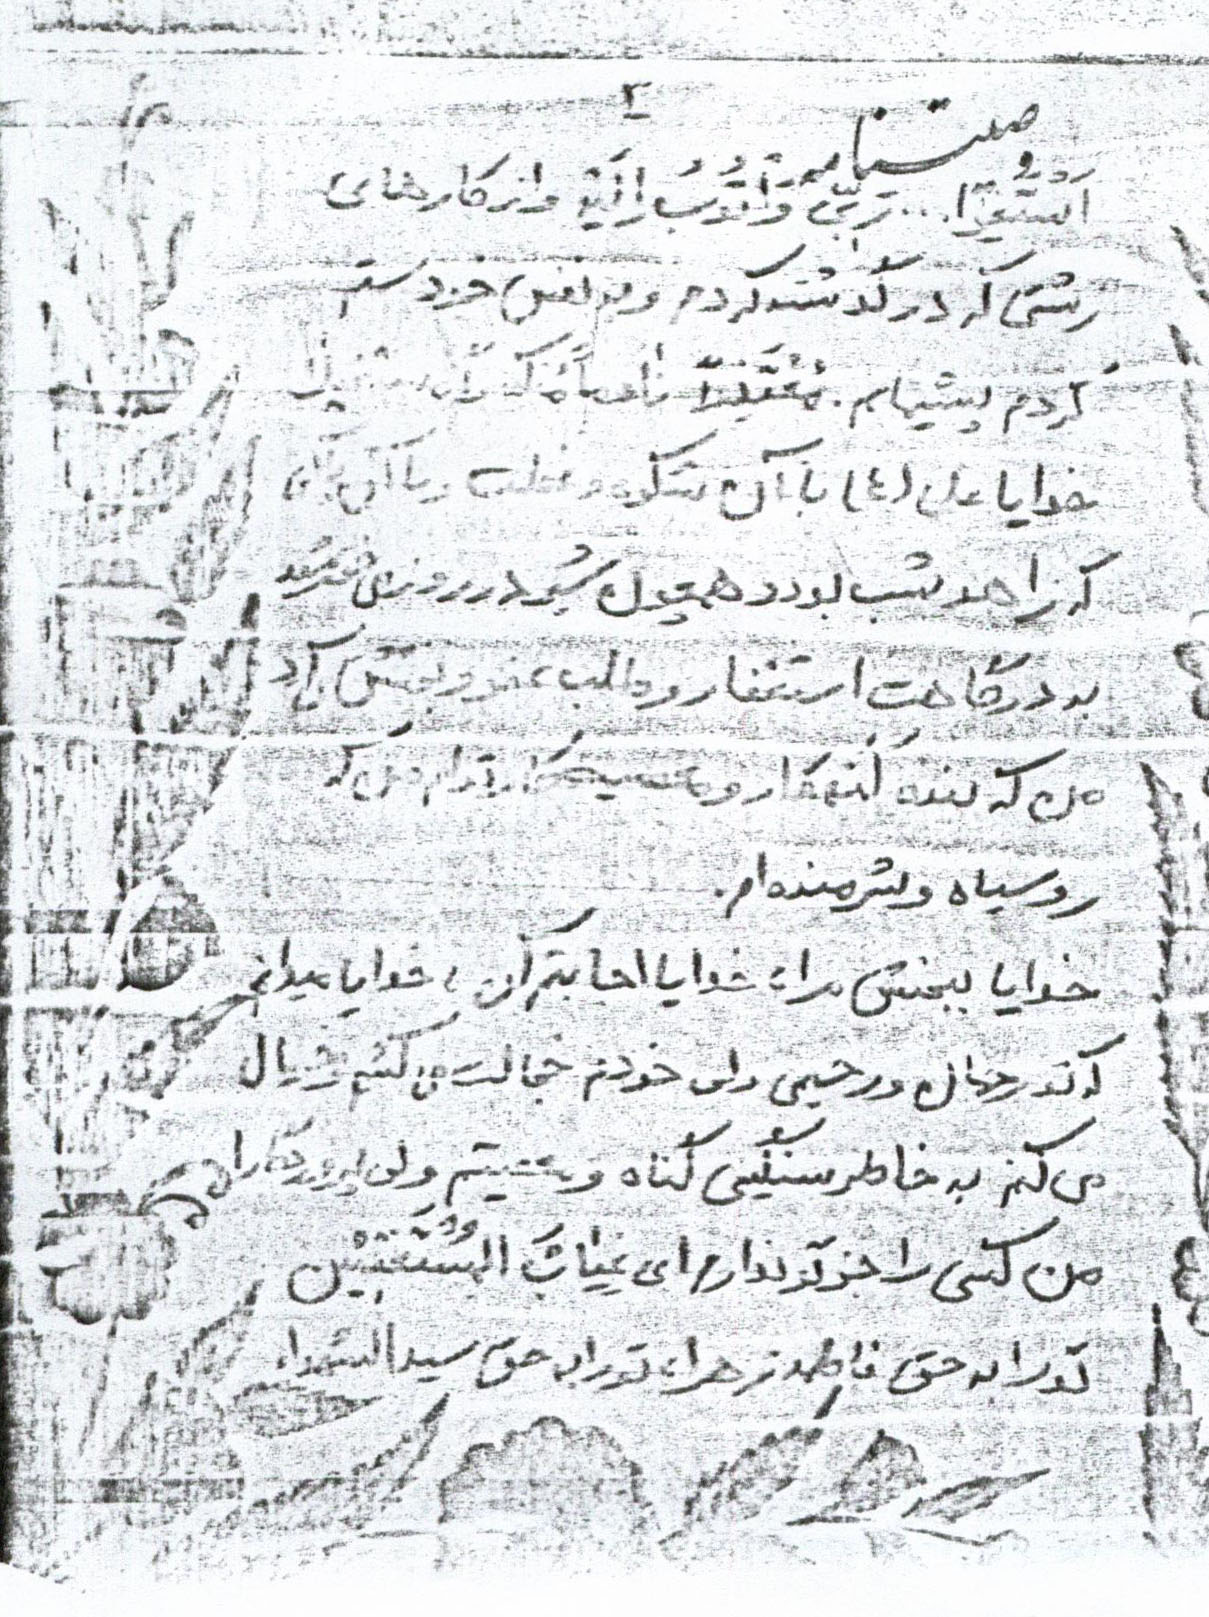 ۳
وصیتنامه
اَسْتَغْفِرُا... رَبّی وَ اَتُوبُ اِلَیْهِ و از کارهای
زشتی که در گذشته کردم و به نفس خود ستم
کردم پشیمانم.
خدایا علی (ع) با آن شکوه و عظمت و با آن
که زاهد شب بود و همچون شیر در روز می
به درگاهت استغفار و طلب عفو و بخشش می‌کرد
من که بنده گنهکار و معصیت‌کار توام من که
روسیاه و شرمنده‌ام.
خدایا ببخش مرا، خدایا اجابتم کن، خدایا میدانم
که تو رحمان و رحیمی ولی خودم خجالت می‌کشم و خیال
می‌کنم به خاطر سنگینی گناه و معصیتم ولی پروردگارا
من کسی را جز تو ندارم ای غِیاثَ المُسْتَغیثین
تو را به حق فاطمه زهرا، تو را به حق سیدالشهداء